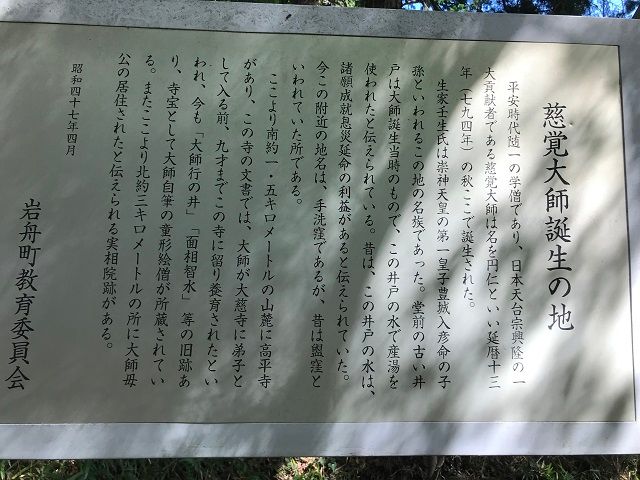 慈覚大師誕生の地
平安時代随一の学僧であり、日本天台宗興隆の一
大貢献者である慈覚大師は名を円仁といい延暦十三
年（七九四年）の秋ここで誕生された。
生家壬生氏は崇神天皇の第一皇子豊城入彦命の子
孫といわれるこの地の名族であった。堂前の古い井
戸は大師誕生当時のもので、この井戸の水で産湯を
使われたと伝えられている。昔は、この井戸の水は、
諸願成就息災延命の利益があると伝えられていた。
今この附近の地名は、手洗窪であるが、昔は盥窪と
いわれていた所である。
ここより南約一・五キロメートルの山麓に高平寺
があり、この寺の文書では、大師が大慈寺に弟子と
して入る前、九才までこの寺に留り養育されたとい
われ、今も「大師行の井」「面相智水」等の旧跡あ
り、寺宝として大師自筆の童形絵僧が所蔵されてい
る。またここより北約三キロメートルの所に大師母
公の居住されたと伝えられる実相院跡がある。
昭和四十七年四月
岩舟町教育委員会